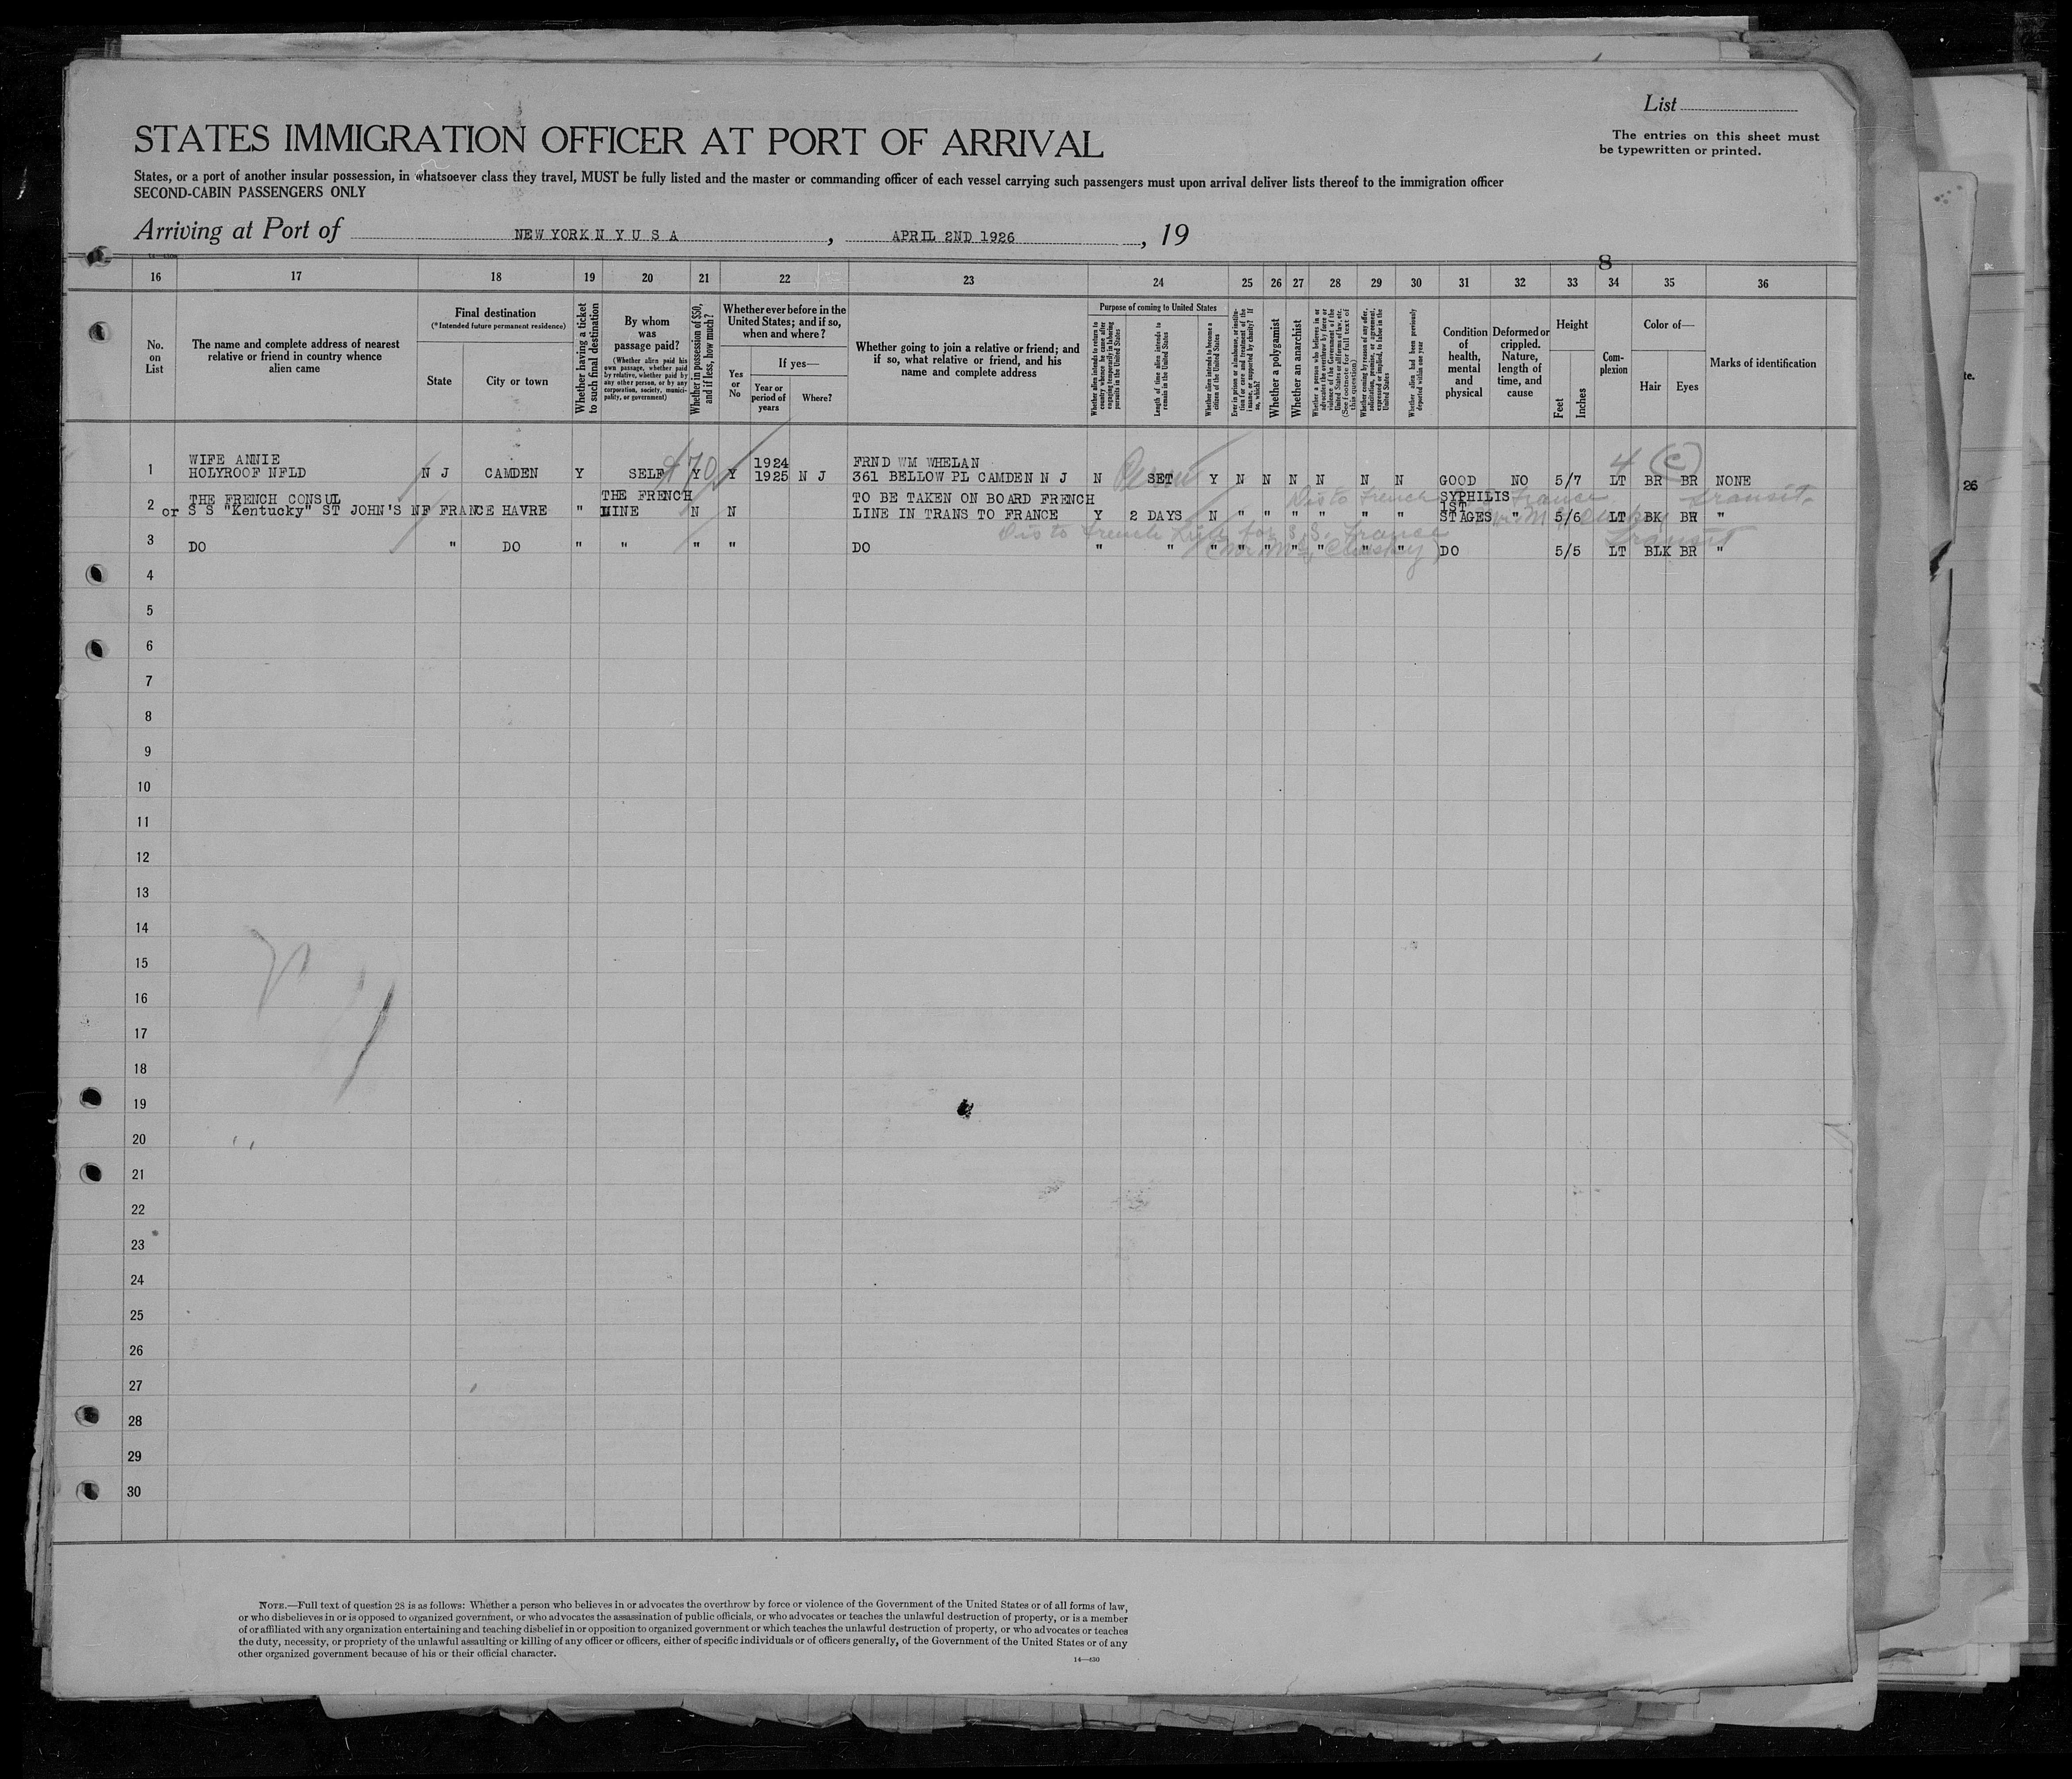 List
STATES IMMIGRATION OFFICER AT PORT OF ARRIVAL
The entries on this sheet must
be typewritten or printed.
States, or a port of another insular possession, in whatsoever class they travel, MUST be fully listed and the master or commanding officer of each vessel carrying such passengers must upon arrival deliver lists thereof to the immigration officer
SECOND-CABIN PASSENGERS ONLY
Arriving at Port of NEW YORK N Y U S A , APRIL 2ND 1926 , 19
8
16 17 18 19 20 21 22 23 24 25 26 27 28 29 30 31 32 33 34 35 36
No. on List
The name and complete address of nearest relative or friend in country whence alien came
Final destination
(*Intended future permanent residence)
State
City or town
Whether having a ticket to such final destination
By whom was passage paid?
(Whether alien paid his own passage, whether paid by relative, whether paid by any other person, or by any corporation, society, municipality, or government)
Whether in possession of $50, and if less, how much?
Whether ever before in the United States; and if so, when and where?
Yes or No
If yes—
Year or period of years
Where?
Whether going to join a relative or friend; and if so, what relative or friend, and his name and complete address
Purpose of coming to United States
Whether alien intends to return to country whence he came after engaging temporarily in laboring pursuits in the United States
Length of time alien intends to remain in the United States
Whether alien intends to become a citizen of the United States
Ever in prison or almshouse, or institution for care and treatment of the insane, or supported by charity? If so, which?
Whether a polygamist
Whether an anarchist
Whether a person who believes in or advocates the overthrow by force or violence of the Government of the United States or all forms of law, etc. (See footnote for full text of this question)
Whether coming by reason of any offer, solicitation, promise, or agreement, expressed or implied, to labor in the United States
Whether alien had been previously deported within one year
Condition of health, mental and physical
Deformed or crippled. Nature, length of time, and cause
Height
Feet
Inches
Com-plexion
Color of—
Hair
Eyes
Marks of identification
WIFE ANNIE 1924 FRND WM WHELAN 4 (C)
1 HOLYROOF NFLD N J CAMDEN Y SELF 70 Y Y 1925 N J 361 BELLOW PL CAMDEN N J N SET Y N N N N N N GOOD NO 5/7 LT BR BR NONE
THE FRENCH CONSUL THE FRENCH TO BE TAKEN ON BOARD FRENCH Dis to French S. France SYPHILIS transit
2 or S S "Kentucky" ST JOHN'S NF FRANCE HAVRE " LINE N N LINE IN TRANS TO FRANCE Y 2 DAYS N " " " " " " 1ST STAGES " 5/6 LT BK BR "
Dis to French Line for S.S. France transit
3 DO " DO " " " " DO " " " " " " " " " DO 5/5 LT BLK BR "
4
5
6
7
8
9
10
11
12
13
14
15
16
17
18
19
20
21
22
23
24
25
26
27
28
29
30
te.
26
NOTE.—Full text of question 28 is as follows: Whether a person who believes in or advocates the overthrow by force or violence of the Government of the United States or of all forms of law,
or who disbelieves in or is opposed to organized government, or who advocates the assassination of public officials, or who advocates or teaches the unlawful destruction of property, or is a member
of or affiliated with any organization entertaining and teaching disbelief in or opposition to organized government or which teaches the unlawful destruction of property, or who advocates or teaches
the duty, necessity, or propriety of the unlawful assaulting or killing of any officer or officers, either of specific individuals or of officers generally, of the Government of the United States or of any
other organized government because of his or their official character.
14—430